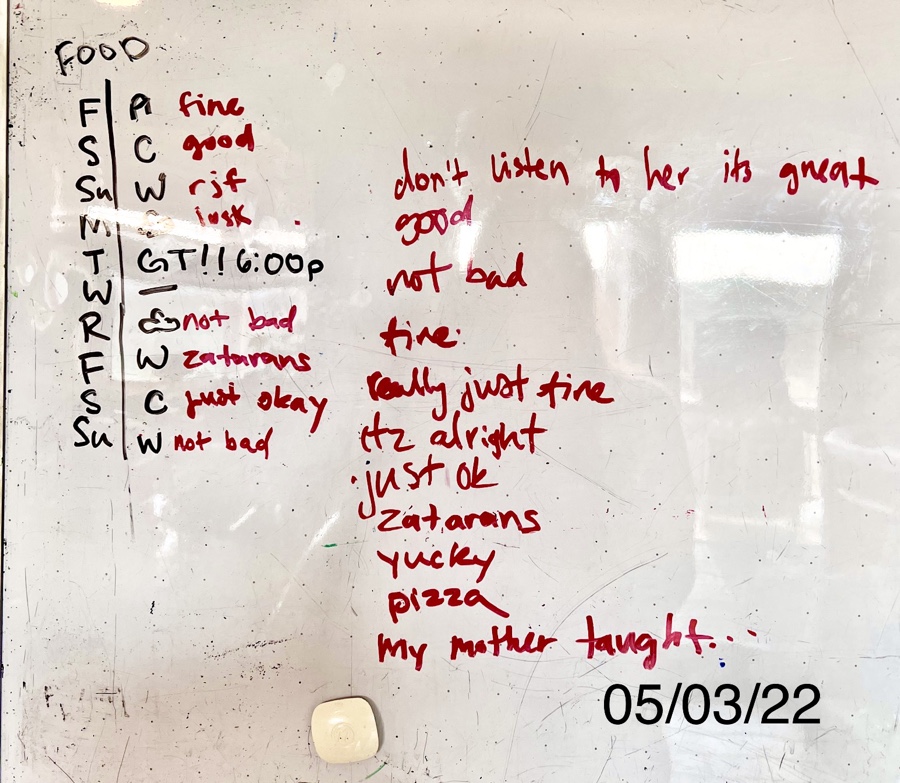 FOOD
F fine
S C good
Su W rjf
M
T GT!!6:00p
W —
R not bad
F W zatarans
S C just okay
Su W not bad
don't listen to her its great
good
not bad
fine
really just fine
itz alright
just ok
zatarans
yucky
pizza
my mother taught...
05/03/22